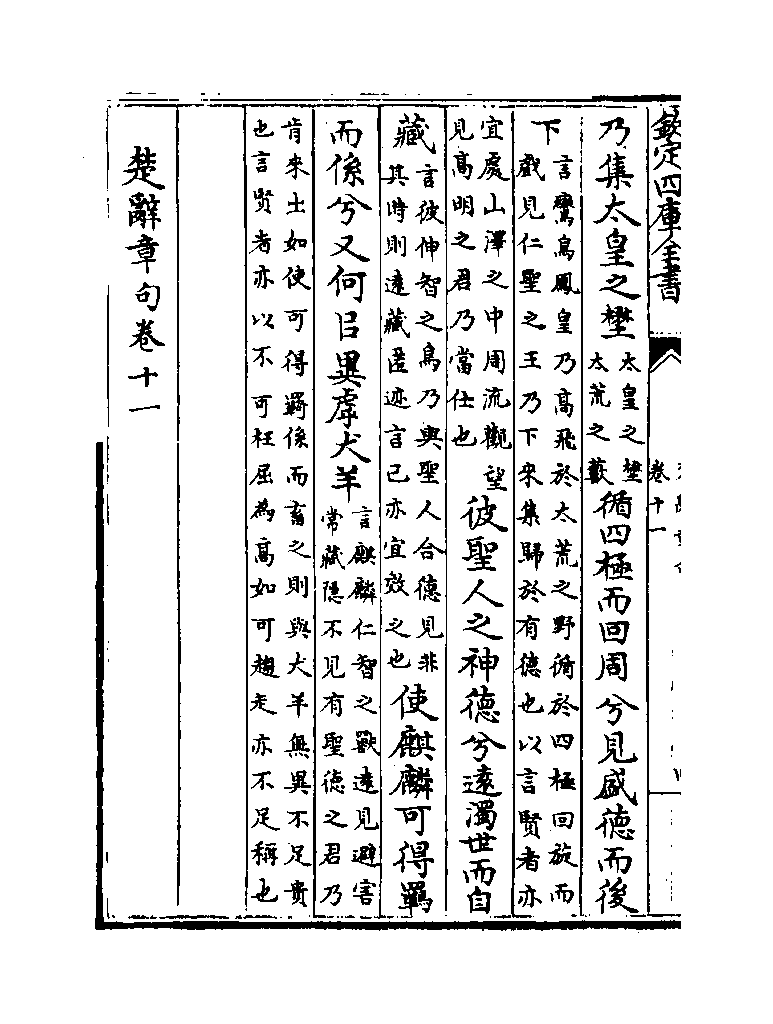 欽定四庫全書
卷十一
乃集太皇之壄太皇之壄太荒之藪循四極而回周兮見盛德而後
下言鸞鳥鳳皇乃高飛於太荒之野循於四極回旋而戲見仁聖之王乃下來集歸於有德也以言賢者亦
宜處山澤之中周流觀望見高明之君乃當仕也彼聖人之神德兮遠濁世而自
藏言彼伸智之鳥乃與聖人合德見非其時則遠藏匿迹言己亦宜效之也使麒麟可得羈
而係兮又何㠯異虖犬羊言麒麟仁智之獸遠見避害常藏隱不見有聖德之君乃
肯來士如使可得羈係而畜之則與犬羊無異不足貴也言賢者亦以不可枉屈為高如可趨走亦不足稱也
楚辭章句卷十一